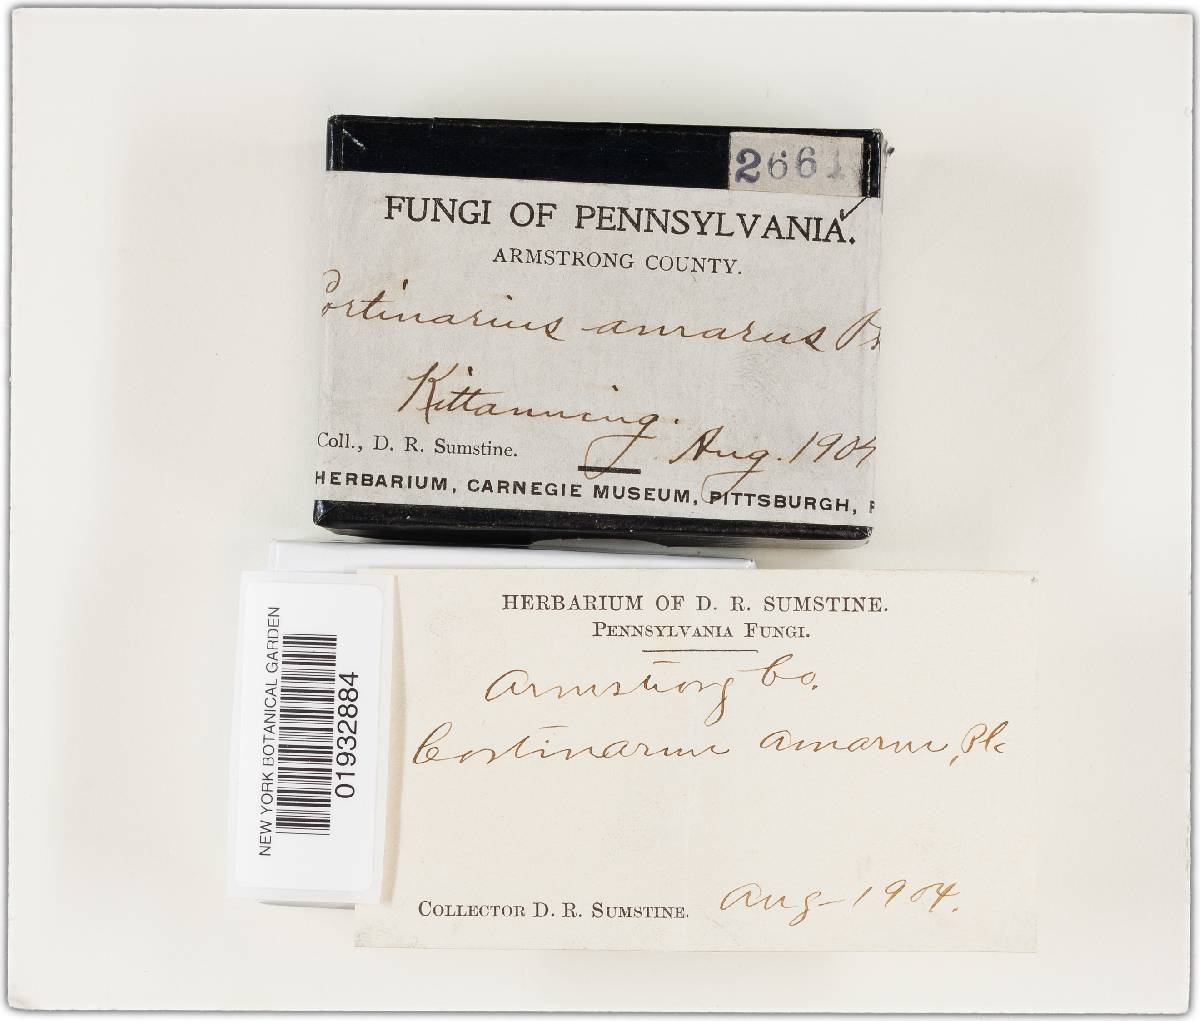 2661
FUNGI OF PENNSYLVANIA.
ARMSTRONG COUNTY.
Cortinarius amarus
Kittanning.
Coll., D. R. Sumstine. Aug. 1904
HERBARIUM, CARNEGIE MUSEUM, PITTSBURGH, P
HERBARIUM OF D. R. SUMSTINE.
PENNSYLVANIA FUNGI.
Armstrong Co.
Cortinarius amarus, Pk
COLLECTOR D. R. SUMSTINE. Aug - 1904.
NEW YORK BOTANICAL GARDEN
01932884